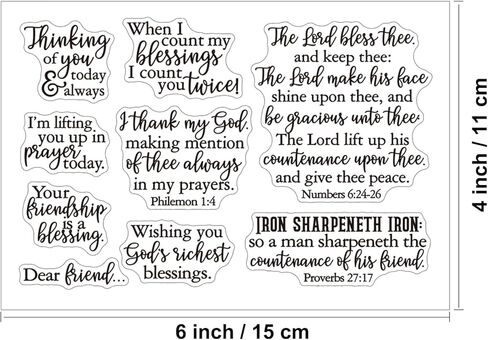 Thinking
of you
today
& always
When I
count my
blessings
I count
you twice!
The Lord bless thee,
and keep thee:
The Lord make his face
shine upon thee, and
be gracious unto thee:
The Lord lift up his
countenance upon thee,
and give thee peace.
Numbers 6:24-26
I'm lifting
you up in
prayer
today.
I thank my God,
making mention
of thee always
in my prayers.
Philemon 1:4
Your
friendship
is a
blessing.
Wishing you
God's richest
blessings.
IRON SHARPENETH IRON;
so a man sharpeneth the
countenance of his friend.
Proverbs 27:17
Dear friend...
4 inch / 11 cm
6 inch / 15 cm